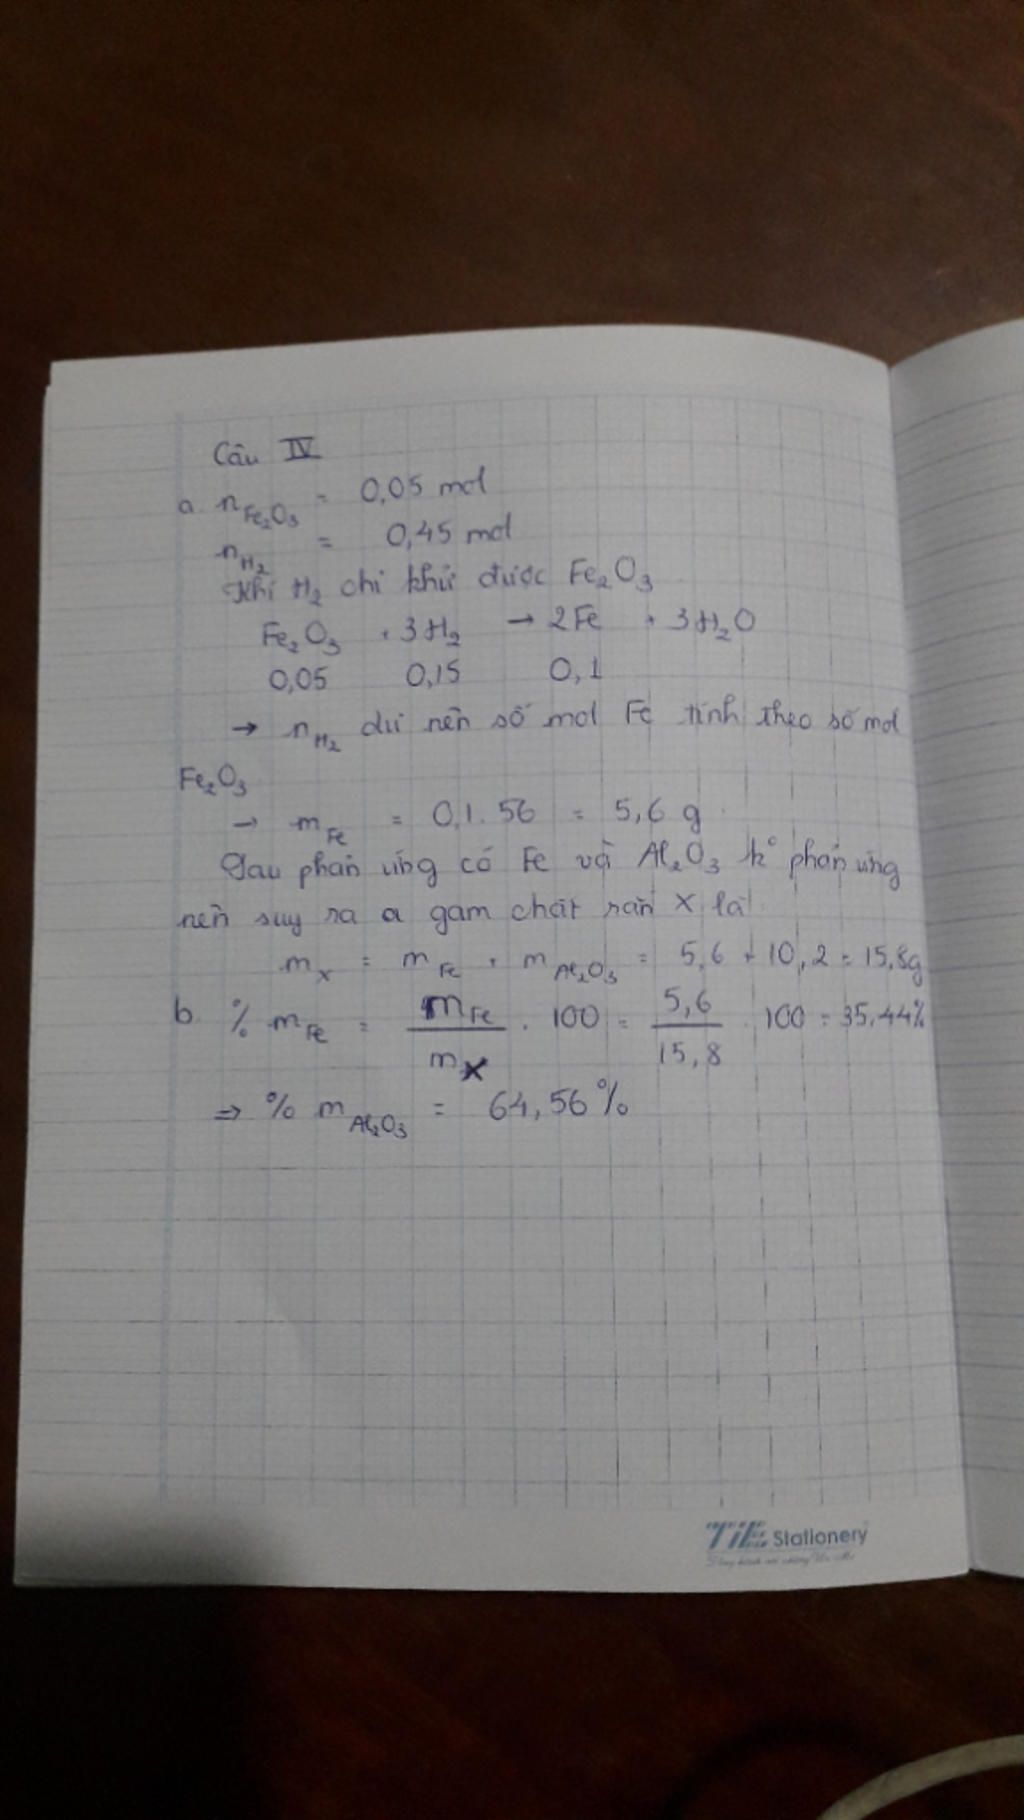 Câu IV
a. nFe₂O₃ = 0,05 mol
nH₂ = 0,45 mol
Khí H₂ chỉ khử được Fe₂O₃
Fe₂O₃ + 3H₂ → 2Fe + 3H₂O
0,05 0,15 0,1
→ nH₂ dư nên số mol Fe tính theo số mol
Fe₂O₃
→ mFe = 0,1.56 = 5,6 g
Sau phản ứng có Fe và Al₂O₃ k° phản ứng
nên suy ra a gam chất rắn X là
mX = mFe + mAl₂O₃ = 5,6 + 10,2 = 15,8g
b. % mFe = mFe/mX . 100 = 5,6/15,8 . 100 = 35,44%
⇒ % mAl₂O₃ = 64,56%
TiE Stationery